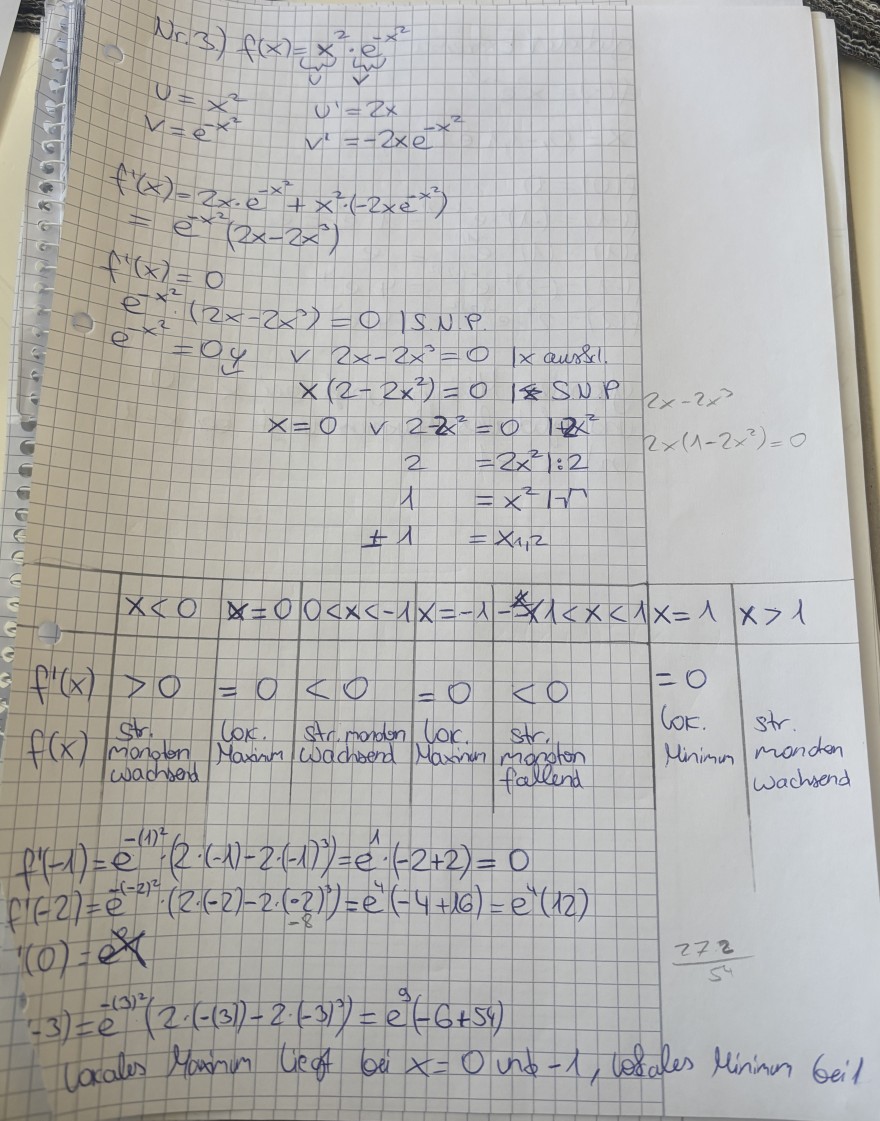 Nr. 3) f(x) = x² · e^-x²
u v
u = x² u' = 2x
v = e^-x² v' = -2xe^-x²
f'(x) = 2x · e^-x² + x² · (-2xe^-x²)
= e^-x² (2x - 2x³)
f'(x) = 0
e^-x² · (2x - 2x³) = 0 | S.N.P.
e^-x² = 0 ↯ v 2x - 2x³ = 0 | x auskl.
x (2 - 2x²) = 0 | S.N.P
2x - 2x³
x = 0 v 2 - 2x² = 0 | +2x²
2x (1 - 2x²) = 0
2 = 2x² | : 2
1 = x² | √
± 1 = x1,2
x < 0 x = 0 0 < x < -1 x = -1 -1 < x < 1 x = 1 x > 1
f'(x) > 0 = 0 < 0 = 0 < 0 = 0
f(x) str. monoton wachsend lok. Maximum str. monoton wachsend lok. Maximum str. monoton fallend lok. Minimum str. monoton wachsend
f'(-1) = e^-(1)² · (2 · (-1) - 2 · (-1)³) = e^1 · (-2 + 2) = 0
f'(-2) = e^-(-2)² · (2 · (-2) - 2 · (-2)³) = e^4 (-4 + 16) = e^4 (12)
-8
'(0) = e
27 2
54
-3) = e^-(3)² (2 · (-(3)) - 2 · (-3)³) = e^9 (-6 + 54)
Lokales Maximum liegt bei x = 0 und -1, lokales Minimum bei 1